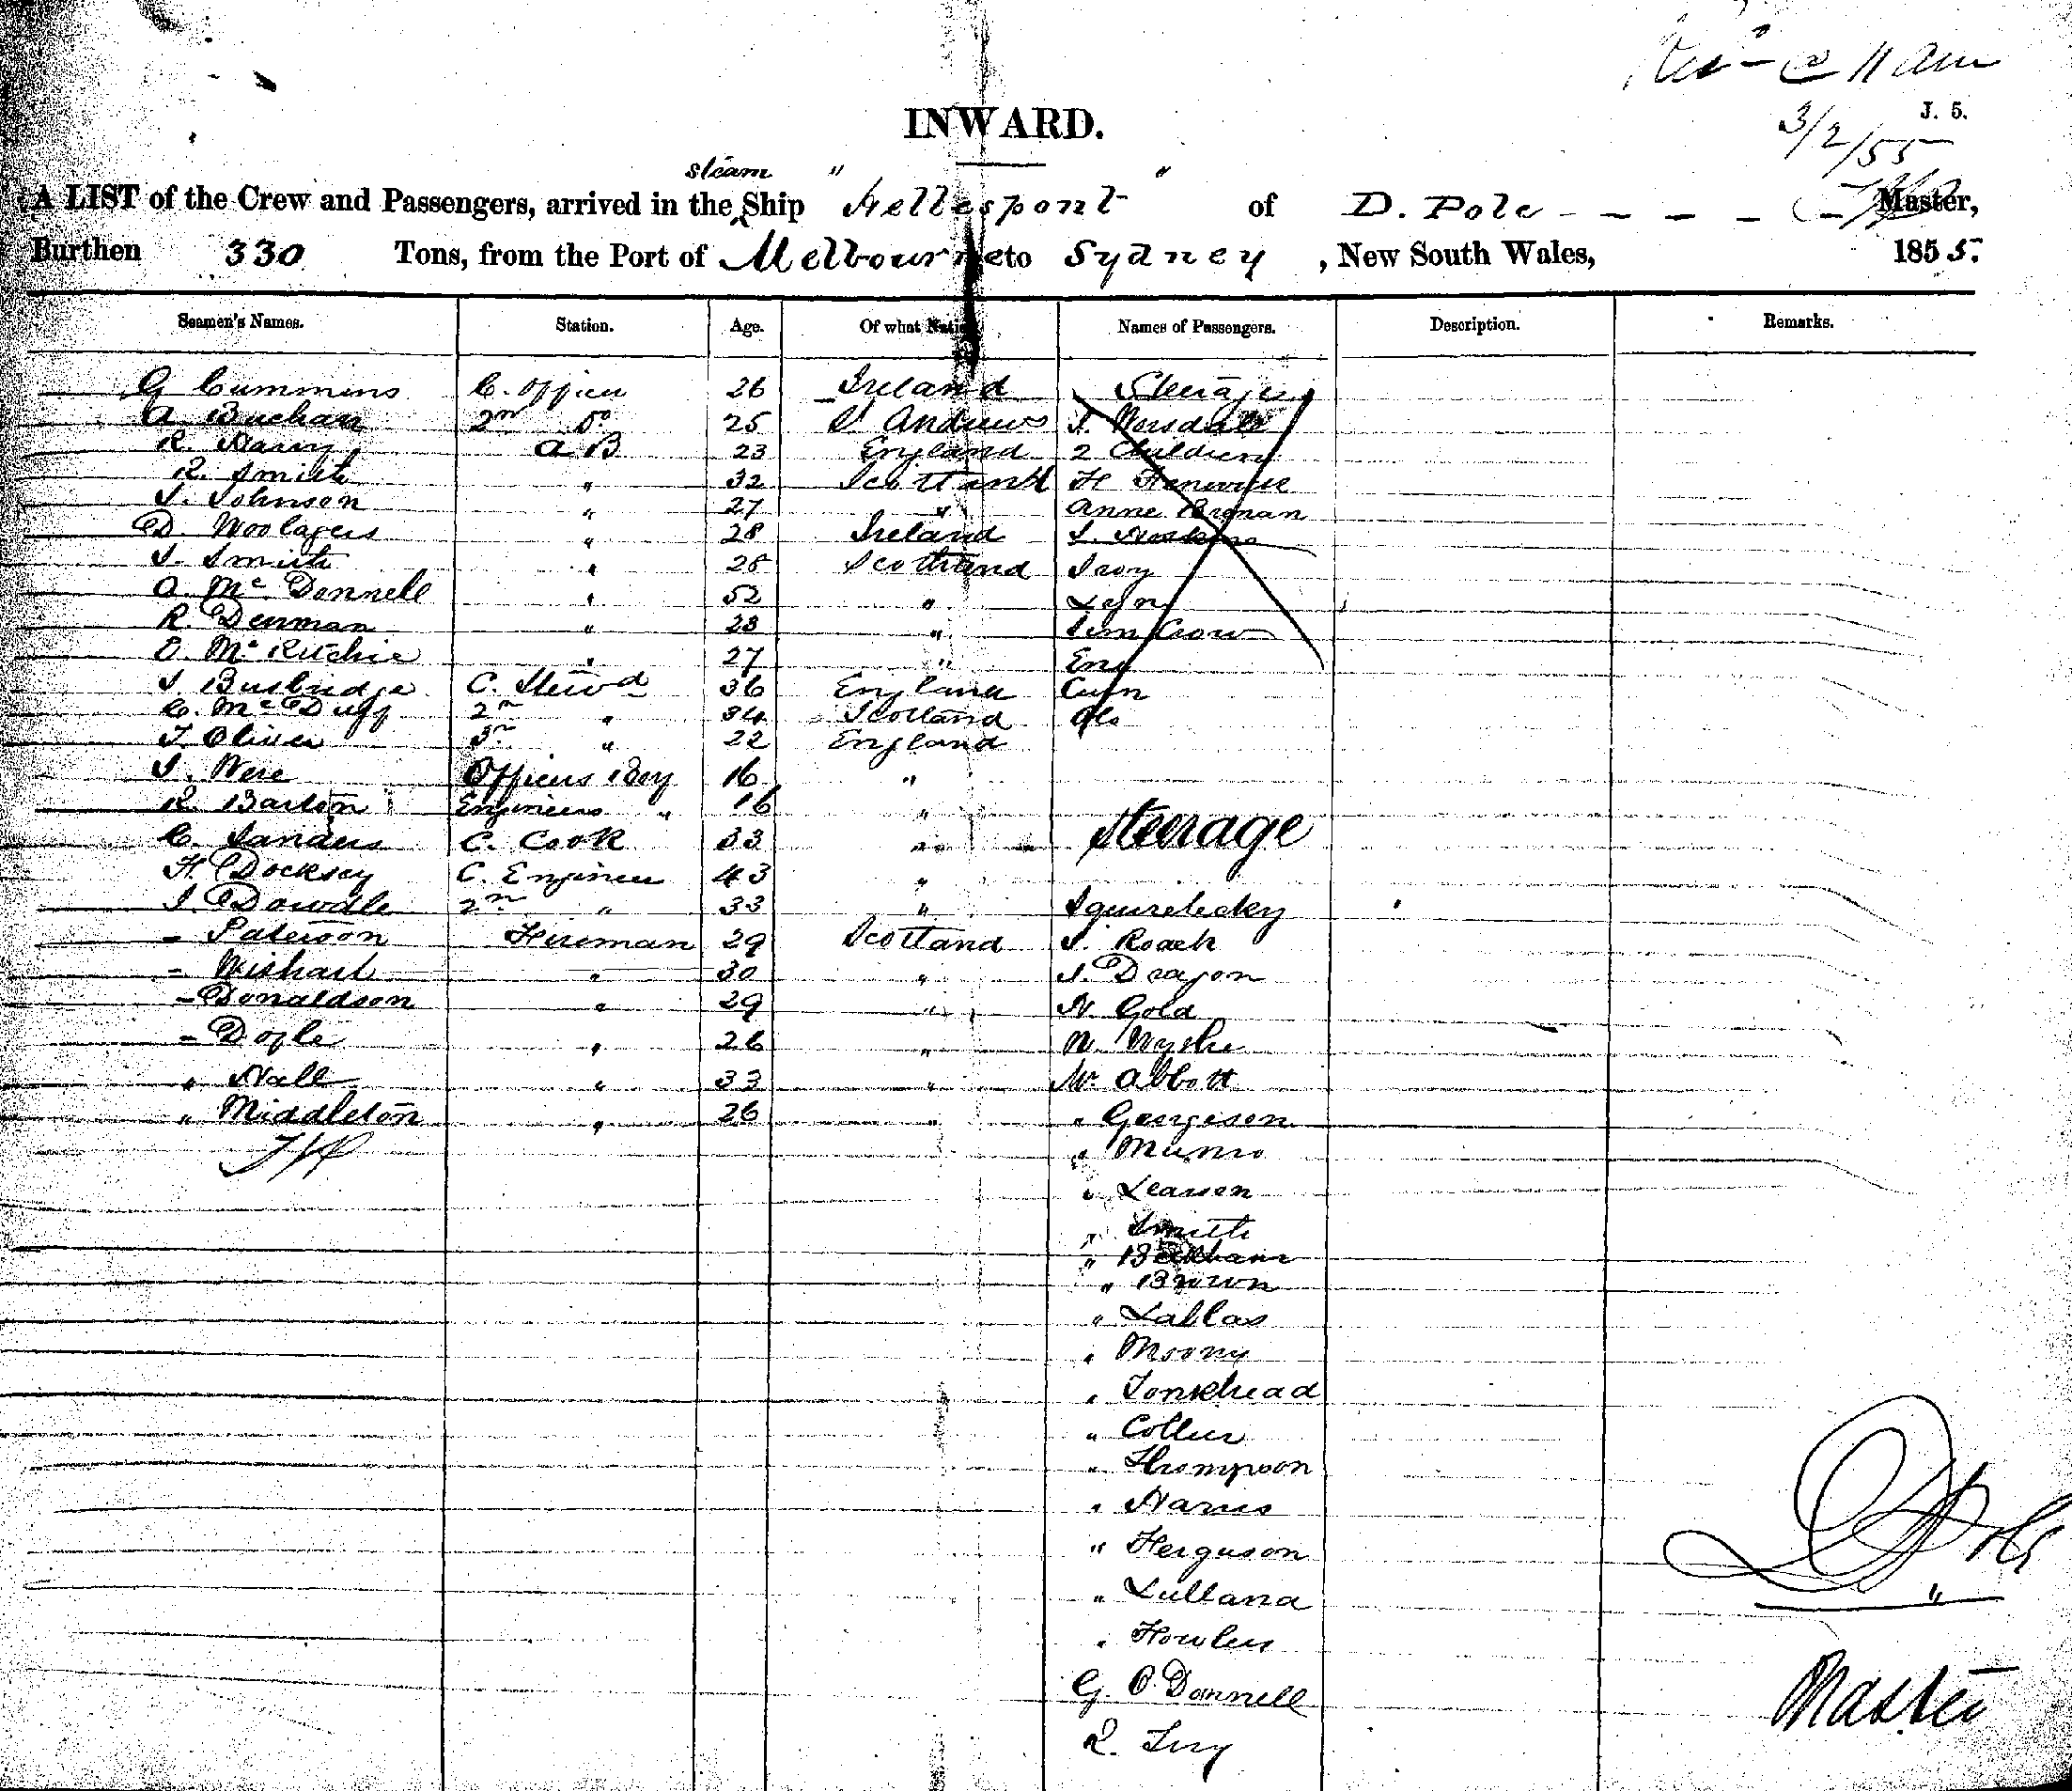 @ 11 am
J. 5.
3/2/55
INWARD.
steam " "
A LIST of the Crew and Passengers, arrived in the Ship Hellespont of D. Pole - - - - Master,
Burthen 330 Tons, from the Port of Melbourne to Sydney, New South Wales, 1855.
Seamen's Names. Station. Age. Of what Nation. Names of Passengers. Description. Remarks.
G Cummins C. Officer 26 Ireland Steerage
A. Buchan 2nd Do 25 St Andrews J. Worsdale
R. Harry A B 23 England 2 Children
R. Smith " 32 Scotland H Fenwick
J. Johnson " 27 " Anne
D. Woolagers " 28 Ireland J.
J. Smith " 25 Scotland
A. McDonnell " 52 "
R. Denman " 28 "
D. McRitchie " 27 "
J. Busbridge C. Stewd 36 England
C. McDuff 2nd " 34 Scotland
T. Oliver 3rd " 22 England
J. Were Officers Boy 16 "
R. Barton Engineers " 16 "
C. Sanders C. Cook 33 " Steerage
H. Docksey C. Engineer 43 "
J. Dowdle 2nd " 33 "
- Paterson Fireman 29 Scotland J. Roach
- Wishart " 30 " J. Dragon
- Donaldson " 29 " N. Gold
- Dogle " 26 " W.
" Hall " 33 " W. Abbott
" Middleton " 26 " " Georgeson
" Munro
" Learsen
" Smith
"
" Brown
" Lallas
" Moony
" Tonkhead
" Collier
" Thompson
" Harris
" Ferguson
" Lullana
" Fowler
G. O'Donnell
R.
D Pole
"
Master